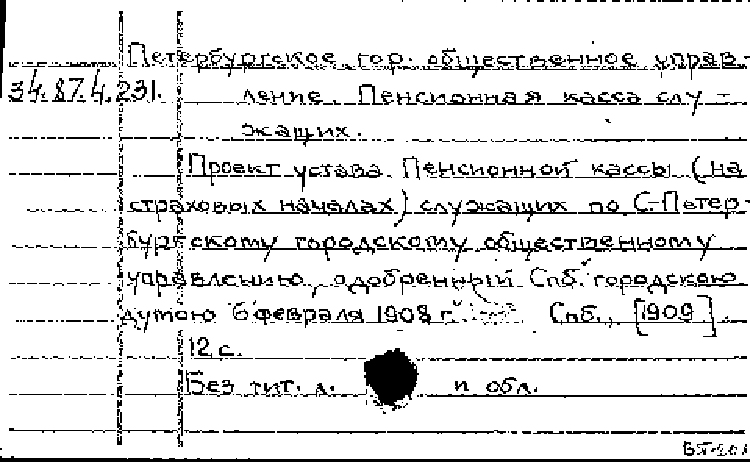 Петербургское гор. общественное управ-
34.87.4.231. ление. Пенсионная касса слу-
жащих.
Проект устава Пенсионной кассы (на
страховых началах) служащих по С.-Петер-
бургскому городскому общественному
управлению, одобренный Спб. городскою
думою 6 февраля 1908 г. Спб., [1909].
12 с.
Без тит. л. и обл.